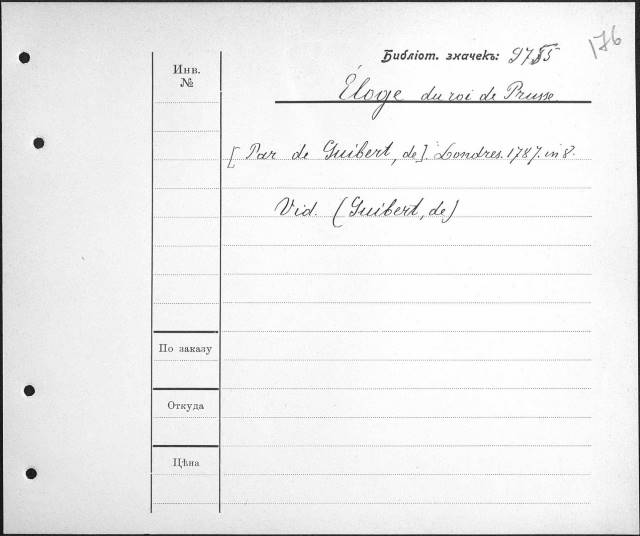 176
Библіот. значекъ:
Инв.
№
Éloge du roi de Prusse.
[Par de Guibert, de]. Londres. 1787. in 8.
Vid. (Guibert, de)
По заказу
Откуда
Цѣна